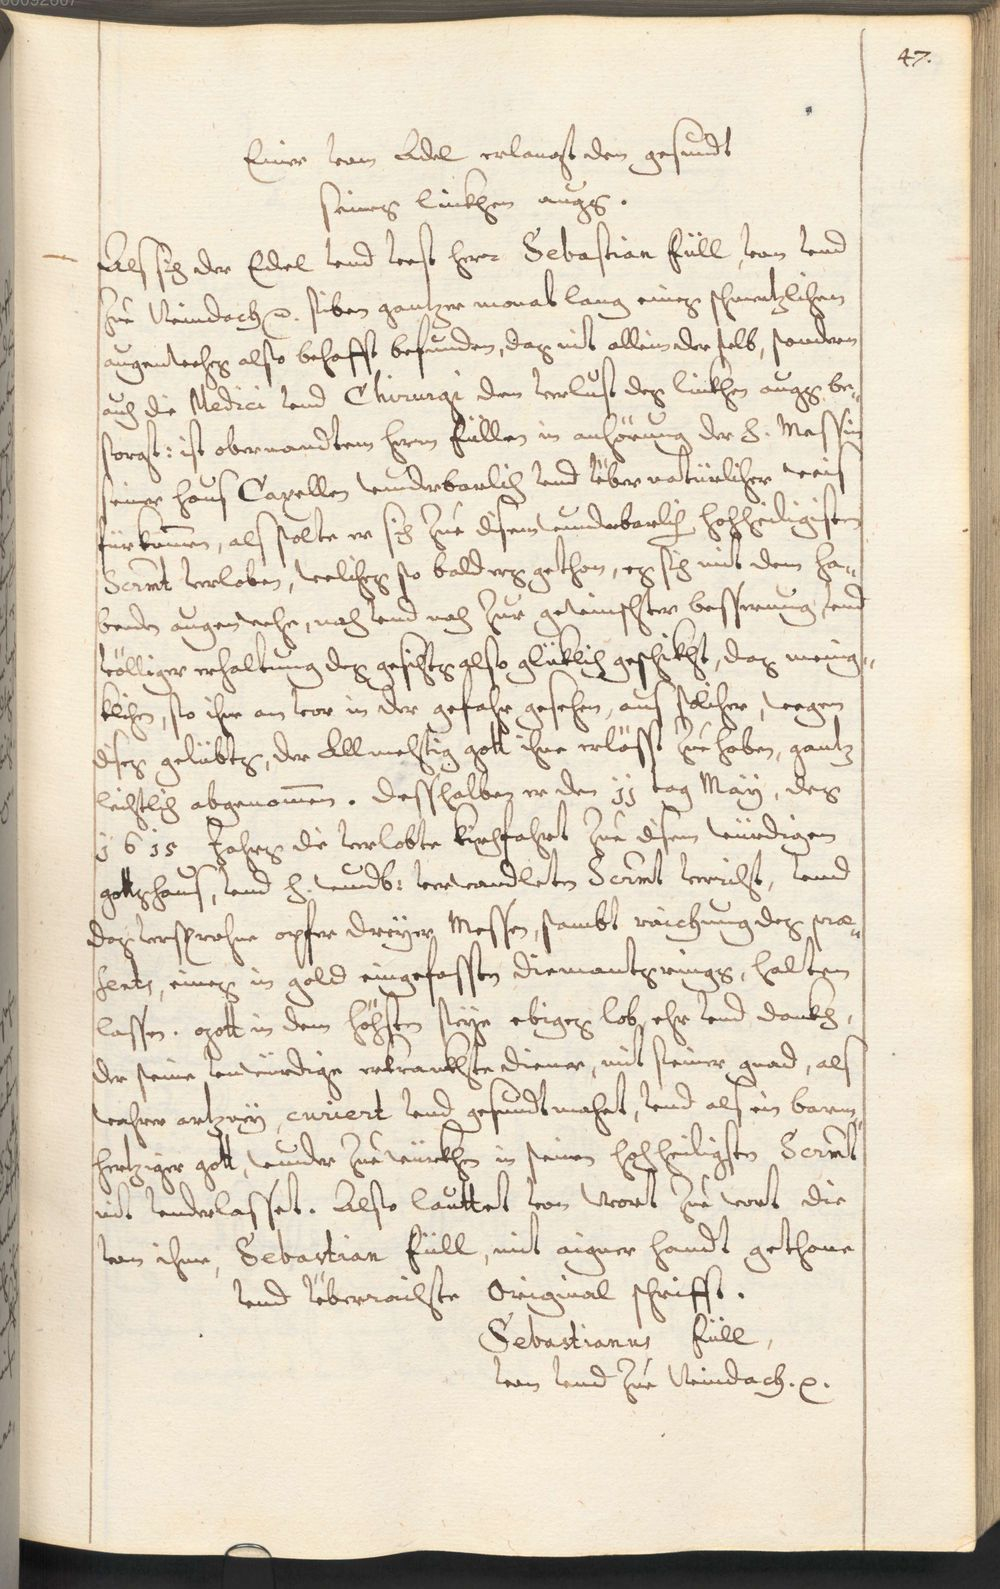 47.
Einer von Adel erlangt den gesundt
seines linkhen augs.
Als sich der Edel und vest herr Sebastian Füll, von und
zue Windach ꝛc. siben gantzer monat lang eines schmertzlichen
augenwehes also behafft befunden, das nit allein der selb, sondern
auch die Medici und Chirurgi den verlust des linkhen augs be-
sorgt: ist obernandtem herrn Füllen in anhörung der h. Mess in
seiner haus Capellen wunderbarlich und übernatürlicher weis
fürkommen, als solte er sich zue disem wunderbarlich hochheiligisten
Scrmt verloben, welches so bald ers gethon, es sich mit dem ha-
benden augenwehe, nach und nach zur gewinschter besserung und
völliger erhaltung des gesichts also glüklich geschikht, das menig-
klichen, so ihne an vor in der gefahr gesehen, aus solcher, wegen
dises gelübts, der Allmechtig gott ihne erlösst zue haben, gantz
leichtlich abgenommen. Desshalben er den jj tag May, des
j6j5 Jahrs die verlobte kirchfahrt zue disem würdigen
gottshaus, und h. wundb: verwandleten Scrmt verricht, und
das versprochne opfer dreyer Messen, sambt raichung des præ-
sents, eines in gold eingefassten diemantsrings, halten
lassen. gott in dem höchsten seye ebiges lob, ehr und dankh,
der seine unwürdige erkrankhte diener, mit seiner gnad, als
wahrer artzney, curiert und gesundt machet, und als ein barm-
hertziger gott, wunder zue würkhen in seinem hochheiligsten Scrmt
nit underlasset. Also lauttet von wort zue wort die
von ihme, Sebastian Füll, mit aigner handt gethone
und überraichte Original schrifft.
Sebastianus Füll,
von und zue Windach. ꝛc.